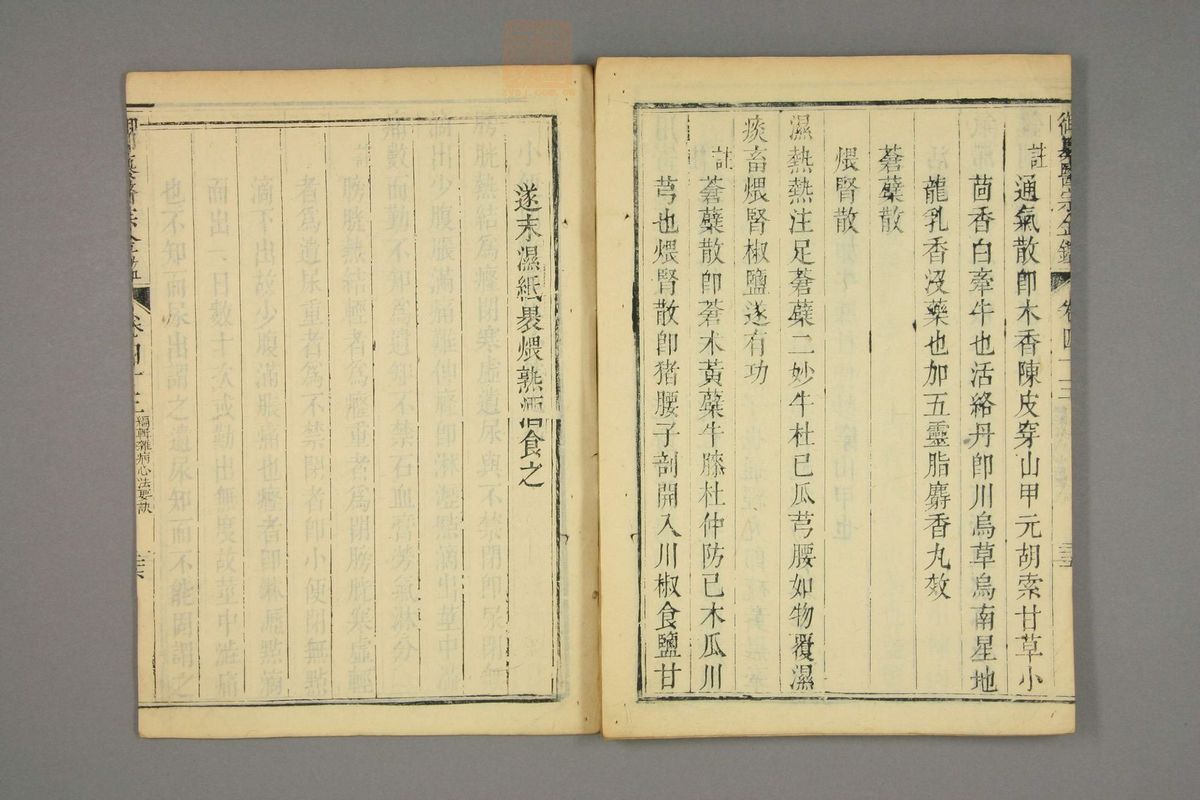 御纂醫宗金鑑 卷四十三
註
通氣散卽木香陳皮穿山甲元胡索甘草小
茴香白牽牛也活絡丹卽川烏草烏南星地
龍乳香沒藥也加五靈脂麝香丸效
蒼蘗散
煨腎散
濕熱熱注足蒼蘗二妙牛杜已瓜芎腰如物覆濕
痰畜煨腎椒鹽遂有功
註
蒼蘗散卽蒼朮黃蘗牛膝杜仲防已木瓜川
芎也煨腎散卽猪腰子剖開入川椒食鹽甘
遂末濕紙裹煨熟酒食之
御纂醫宗金鑑 卷四十三 編輯雜病心法要訣